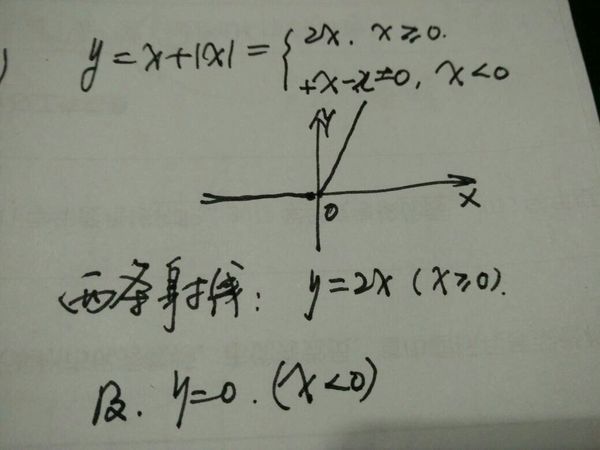 ) y=x+|x|={2x. x≥0.
+x-x=0, x<0
Y
0 X
两条射线: y=2x (x≥0).
及. y=0. (x<0)